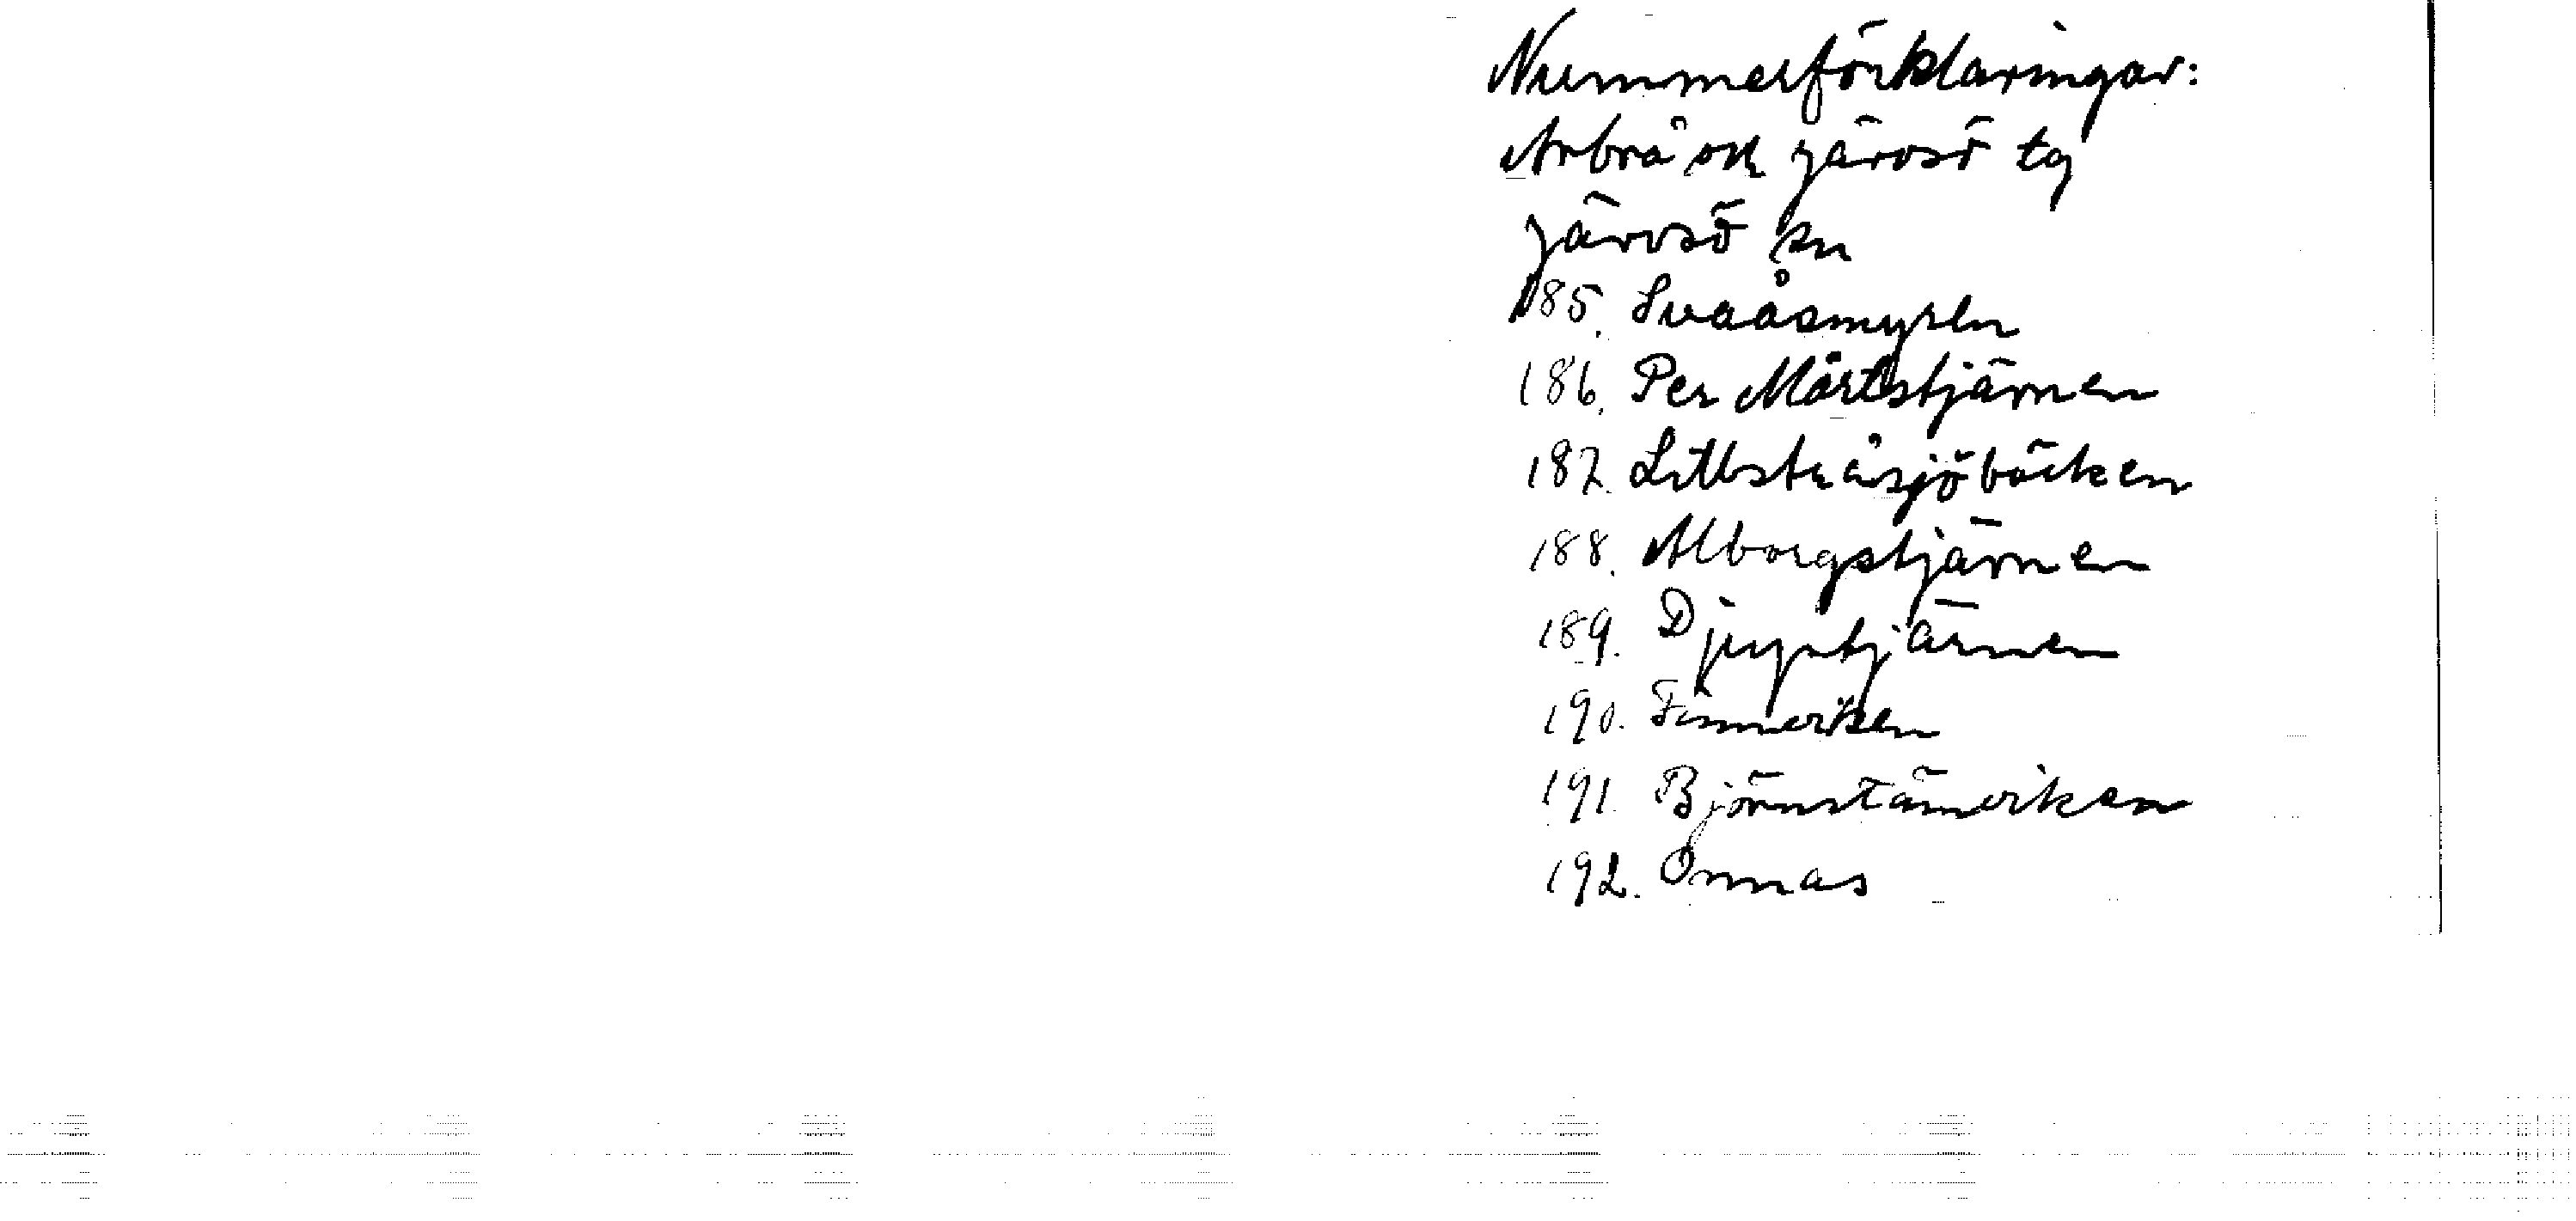 Nummerförklaringar:
Arbrå och Järvsö tg
Järvsö sn
185. Svaåsmyren
186. Per Mårtstjärnen
187. Lillstuåsjöbäcken
188. Alborgstjärnen
189. Djuptjärnen
190.
191.
192. Onnas